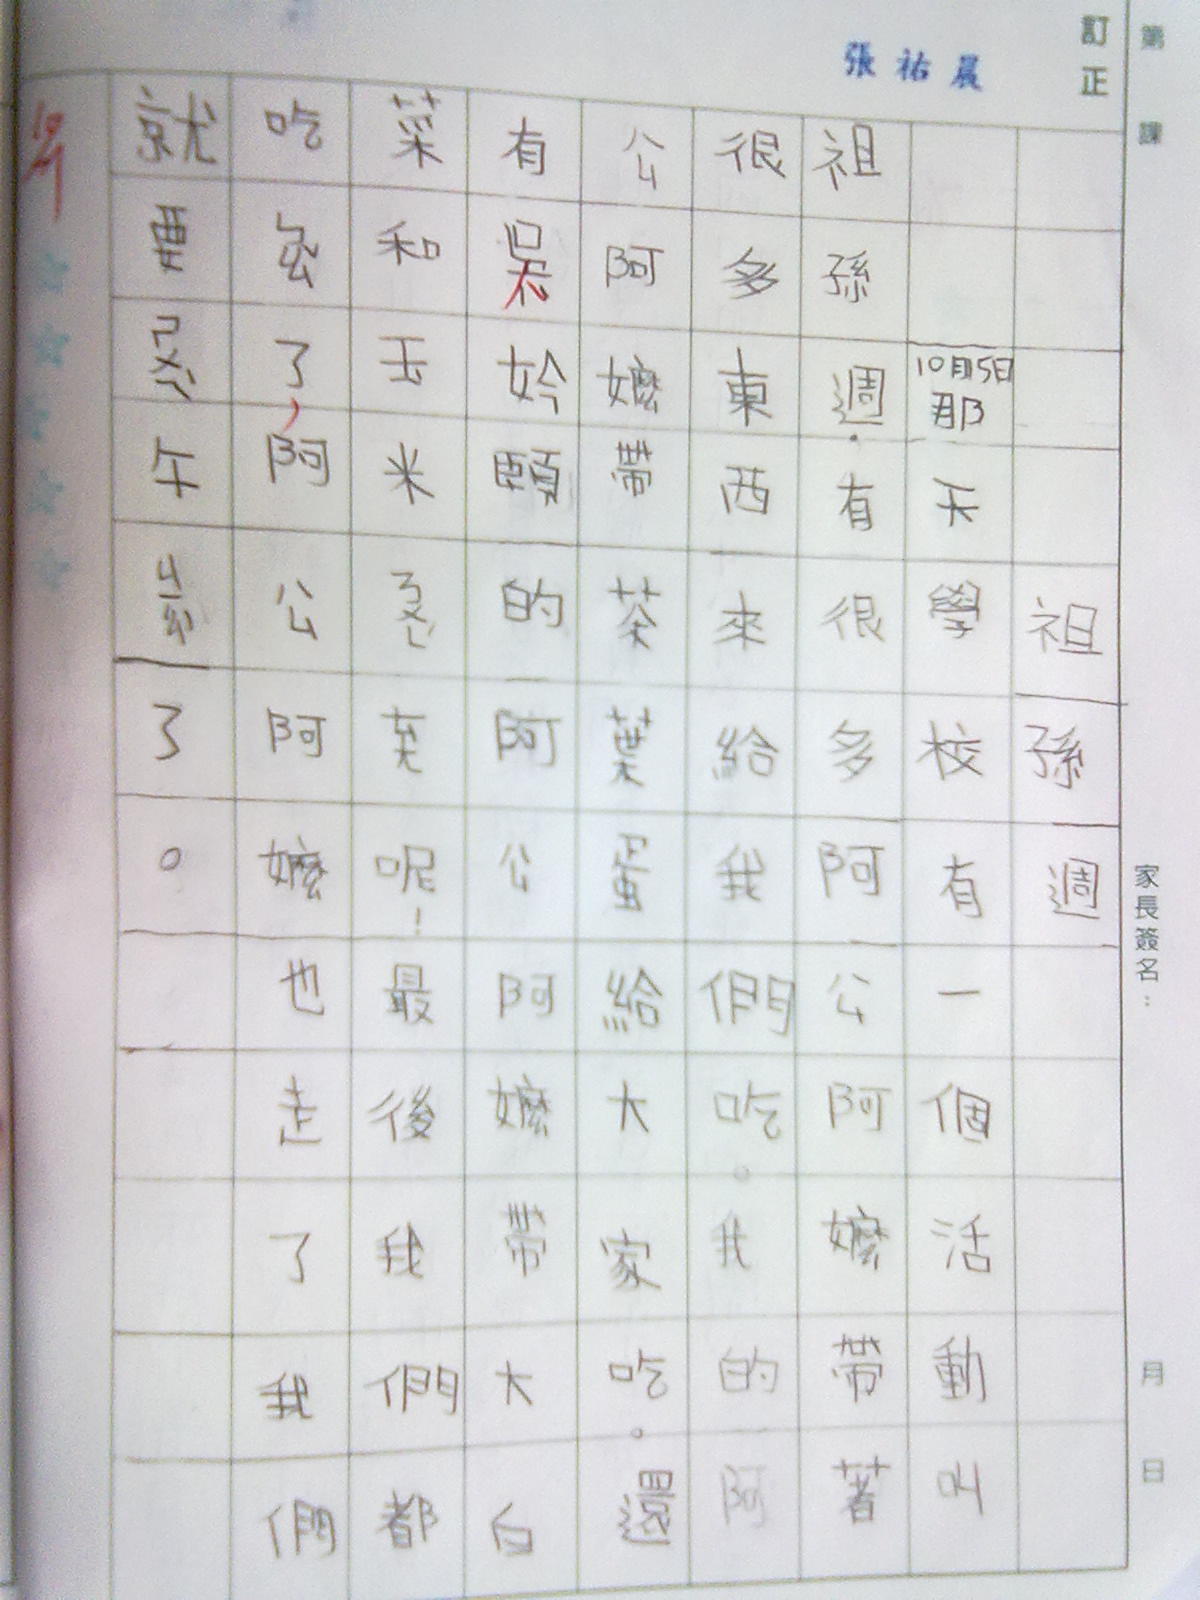 第 課
家長簽名：
月 日
訂正
張祐晨
祖孫週
10月5日那天學校有一個活動叫
祖孫週。有很多阿公阿嬤帶著
很多東西來給我們吃。我的阿
公阿嬤帶茶葉蛋給大家吃。還
有吳妗頤的阿公阿嬤帶大白
菜和玉米ㄋㄨㄥˊ羔呢！最後我們都
吃飽了，阿公阿嬤也走了我們
就要ㄕㄨㄟˋ午ㄐㄧㄠˋ了。